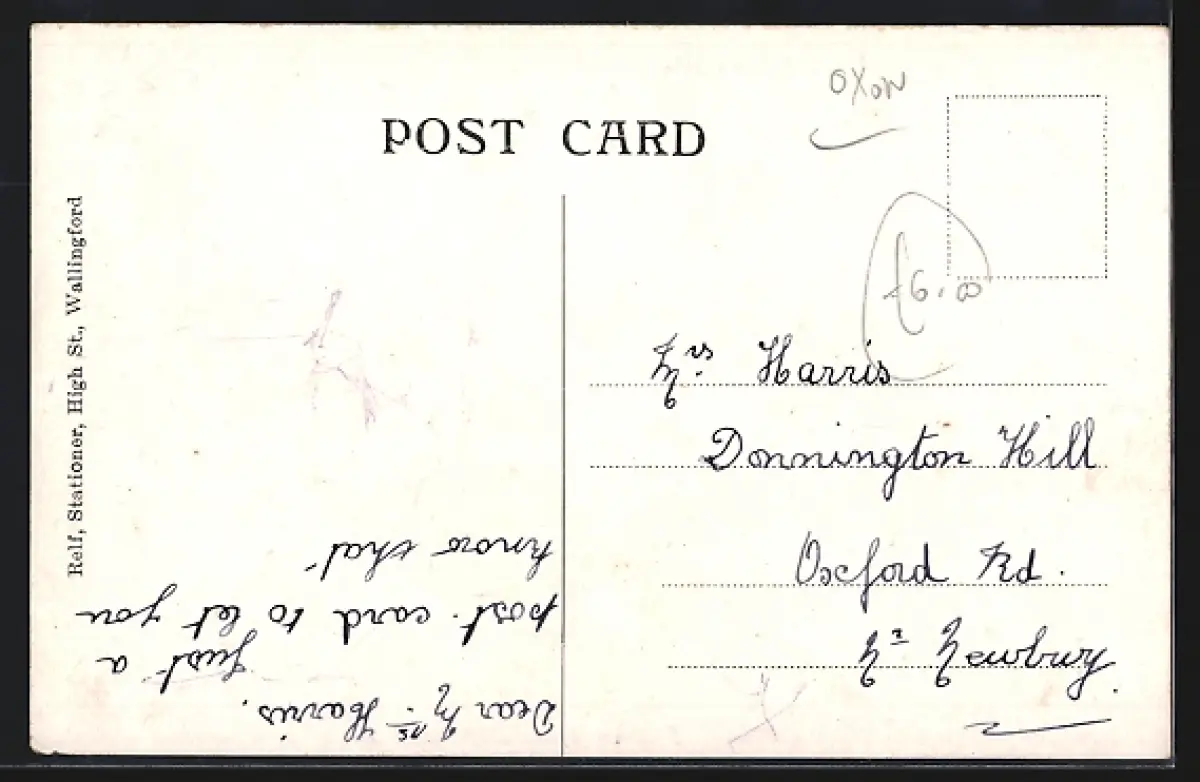 POST CARD
OXON
£6.00
Relf, Stationer, High St., Wallingford
Mrs. Harris
Donnington Hill
Oxford Rd.
Nr Newbury.
Dear Mrs. Harris.
Just a
post card to let you
know that